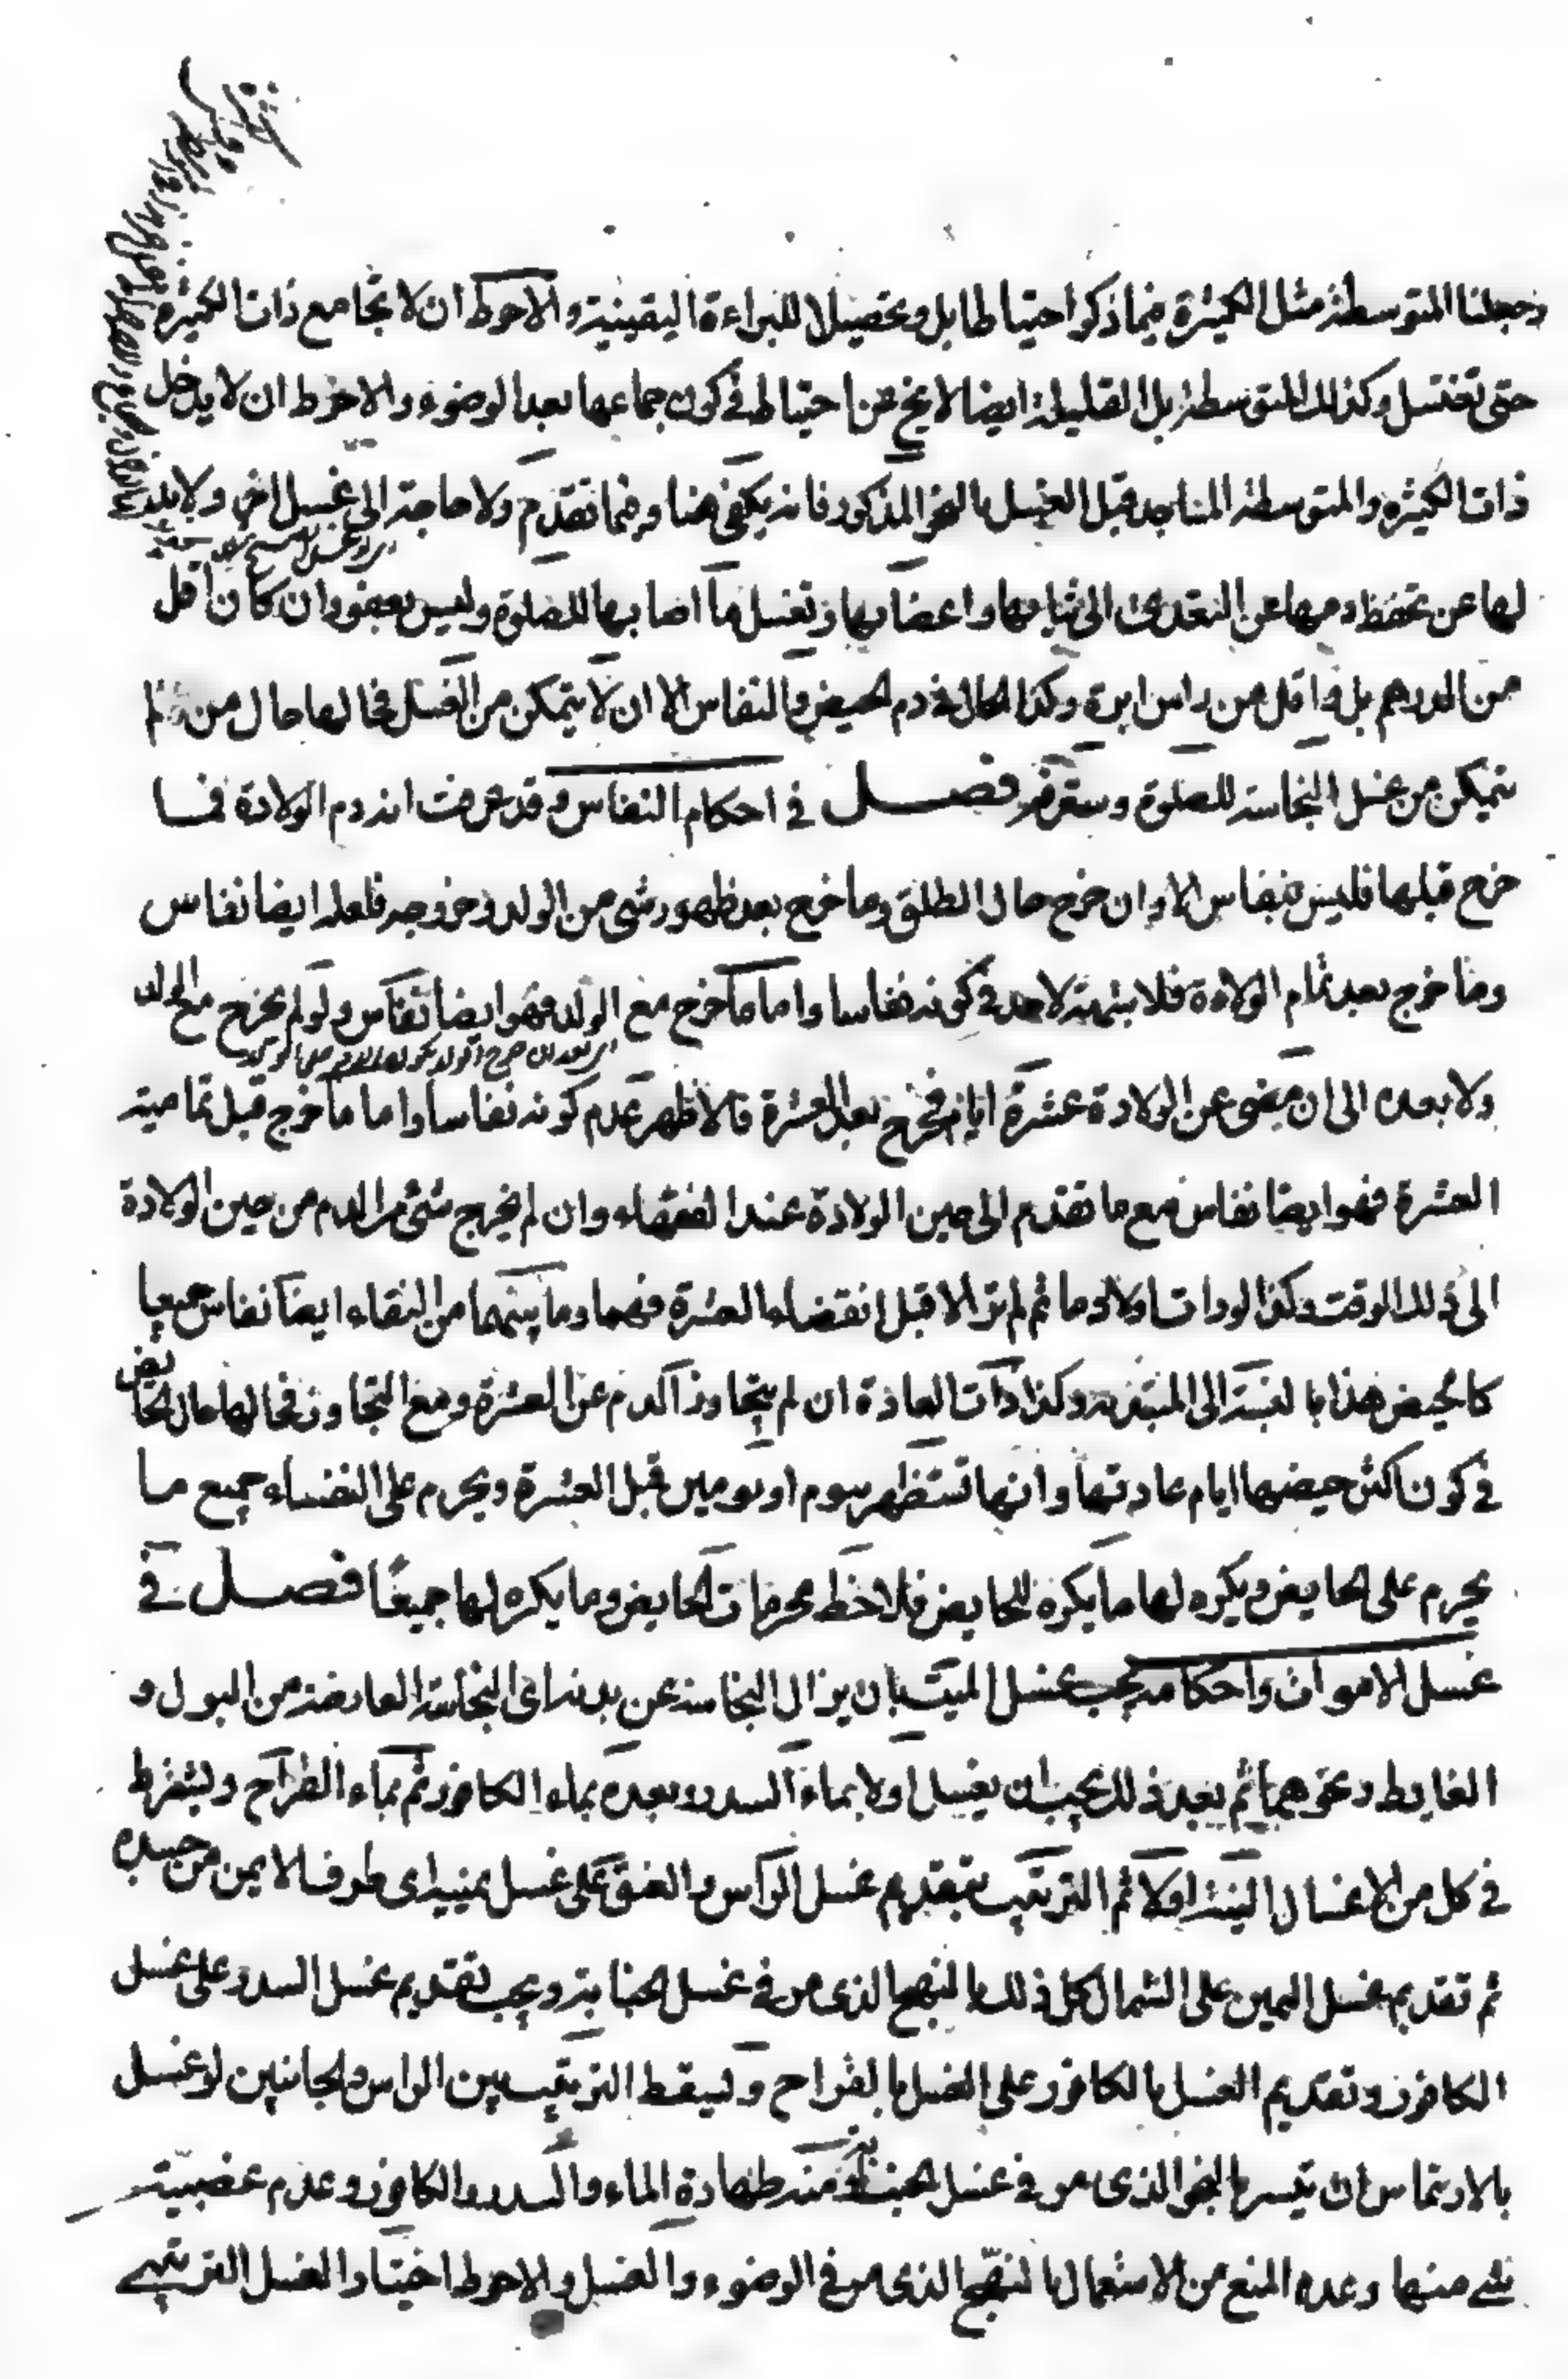 وجعلنا المتوسطة مثل الكثيرة فيما ذكر احتياطا بل وتحصيلا للبراءة اليقينية والاحوط ان لا تجامع ذات الكثيرة
حتى تغتسل وكذلك المتوسطة بل القليلة ايضا لا يخ عن احتياط في كون جماعها بعد الوضوء والاحوط ان لا يدخل
ذات الكثيره والمتوسطة المساجد قبل الغسل بالنحو المذكور فانه يكفى هنا وفيما تقدم ولا حاجة الى غسل اخر ولا بد
لها عن تحفظ دمها عن التعدى الى ثيابها واعضائها وتغسل ما اصابها للصلوة وليس بعفو وان كان اقل
من الدرهم بل واقل من راس ابرة وكذا الحال في دم الحيض والنفاس الا ان لا يتمكن من الغسل فحالها حال من لم
يتمكن من غسل النجاسة للصلوة وستعرفه فصل في احكام النفاس وقد عرفت انه دم الولادة فما
خرج قبلها فليس بنفاس الا وان خرج حال الطلق وما خرج بعد ظهور شى من الولد وخروجه فلعله ايضا نفاس
وما خرج بعد تمام الولادة فلا شبهة لاحد في كونه نفاسا واما ما خرج مع الولد فهو ايضا نفاس ولو لم يخرج مع الولد
ولا بعده الى ان يمضى عن الولادة عشرة ايام فخرج بعد العشرة فالاظهر عدم كونه نفاسا واما ما خرج قبل تمامية
العشرة فهو ايضا نفاس مع ما تقدم الى حين الولادة عند الفقهاء وان لم يخرج شئ من الدم من حين الولادة
الى ذلك الوقت وكذا لو رات اولا دما ثم لم تر الا قبل انقضاء العشرة فهما وما بينهما من النقاء ايضا نفاس جميعا
كالحيض هذا بالنسبة الى المبتدئة وكذا ذات العادة ان لم يتجاوز الدم عن العشرة ومع التجاوز فحالها حال الحائض
في كون اكثر حيضها ايام عادتها وانها تستظهر بيوم او يومين قبل العشرة ويحرم على النفساء جميع ما
يحرم على الحايض ويكره لها ما يكره للحايض فلاحظ محرمات الحايض وما يكره لها جميعًا فصل في
غسل الاموات واحكامه يجب غسل الميت بان يزال النجاسة عن بدنه اى النجاسة العارضة من البول و
الغايط ونحوهما ثم بعد ذلك يجب ان يغسل اولا بماء السدر وبعده بماء الكافور ثم بماء القراح ويشترط
في كل من الاغسال النية اولا ثم الترتيب بتقديم غسل الراس والعنق على غسل يمينه اى طرف الايمن من جسده
ثم تقديم غسل اليمين على الشمال كل ذلك بالنهج الذى مر في غسل الجنابة ويجب تقديم غسل السدر على غسل
الكافور وتقديم الغسل بالكافور على الغسل بالقراح ويسقط الترتيب بين الراس والجانبين لو غسل
بالارتماس ان تيسر بالنحو الذى مر في غسل الجنابة ومنه طهارة الماء والسدر والكافور وعدم غصبية
شے منها وعدم المنع من الاستعمال بالنهج الذى مر في الوضوء والغسل والاحوط اختيار الغسل الترتيبے